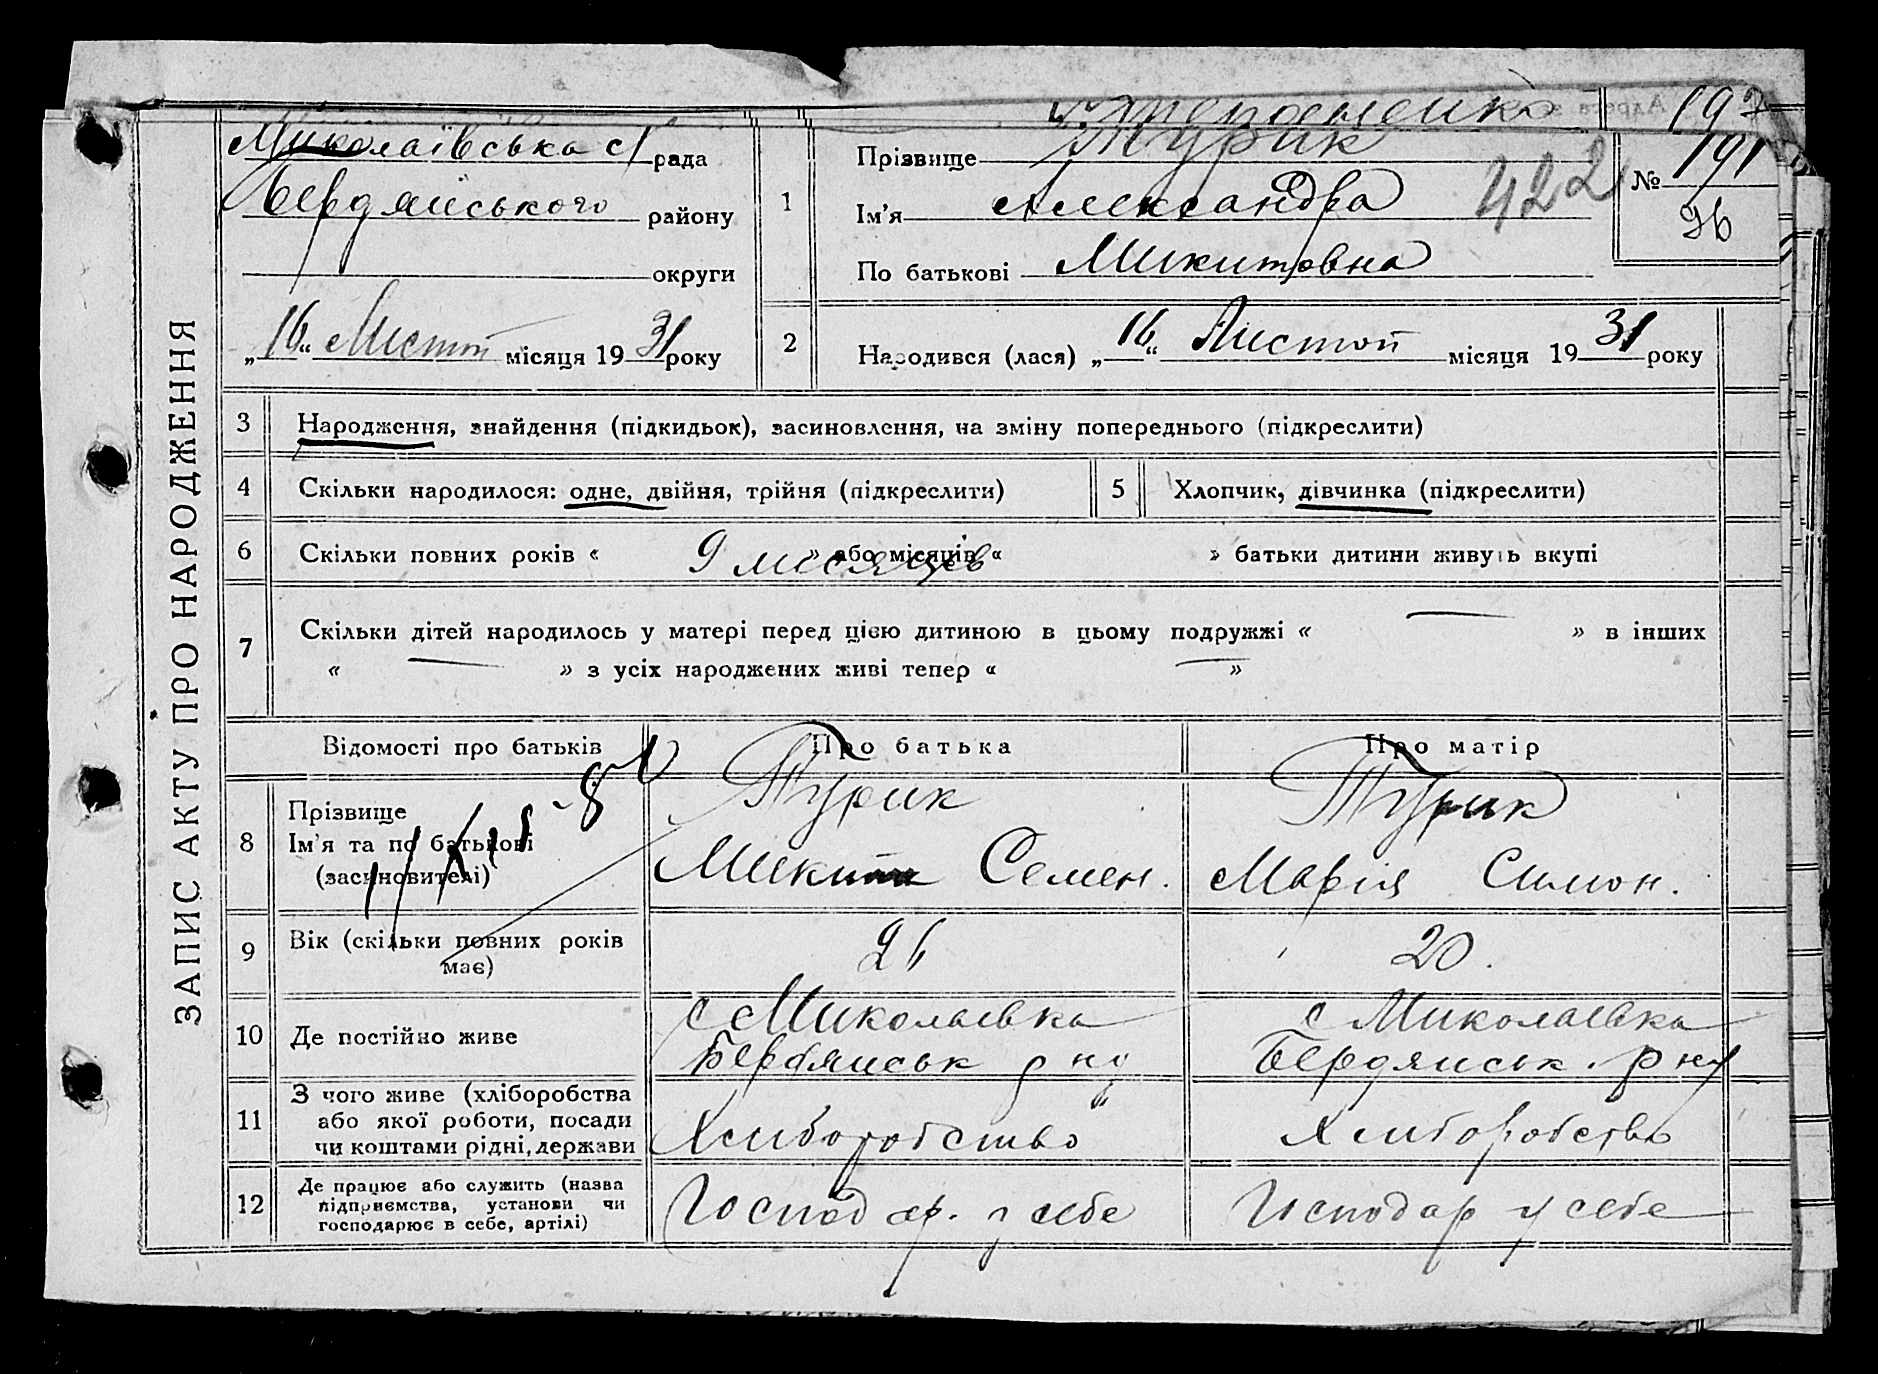 ЗАПИС АКТУ ПРО НАРОДЖЕННЯ
Миколаївська с/рада
Бердянського району
округи
„16“ Листоп місяця 1931 року
1
Прізвище Турик
Ім'я Александра
По батькові Микитовна
422
197
№ 191
26
2
Народився (лася) „16“ Листоп місяця 1931 року
3 Народження, знайдення (підкидьок), засиновлення, на зміну попереднього (підкреслити)
4 Скільки народилося: одне, двійня, трійня (підкреслити)
5 Хлопчик, дівчинка (підкреслити)
6 Скільки повних років « 9 месяцев » або місяців « » батьки дитини живуть вкупі
7 Скільки дітей народилось у матері перед цією дитиною в цьому подружжі « — » в інших
« — » з усіх народжених живі тепер « — »
Відомості про батьків Про батька Про матір
8 Прізвище
Ім'я та по батькові
(засиновителі)
Турик
Микита Семен.
Турик
Марія Симон.
9 Вік (скільки повних років
має)
26
20.
10 Де постійно живе
с Миколаевка
Бердянськ р ну
с Миколаевка
Бердянськ. р ну
11 З чого живе (хліборобства
або якої роботи, посади
чи коштами рідні, держави
Хлиборобство
Хлиборобство
12 Де працює або служить (назва
підприємства, установи чи
господарює в себе, артілі)
Господар. у себе
Господар у себе